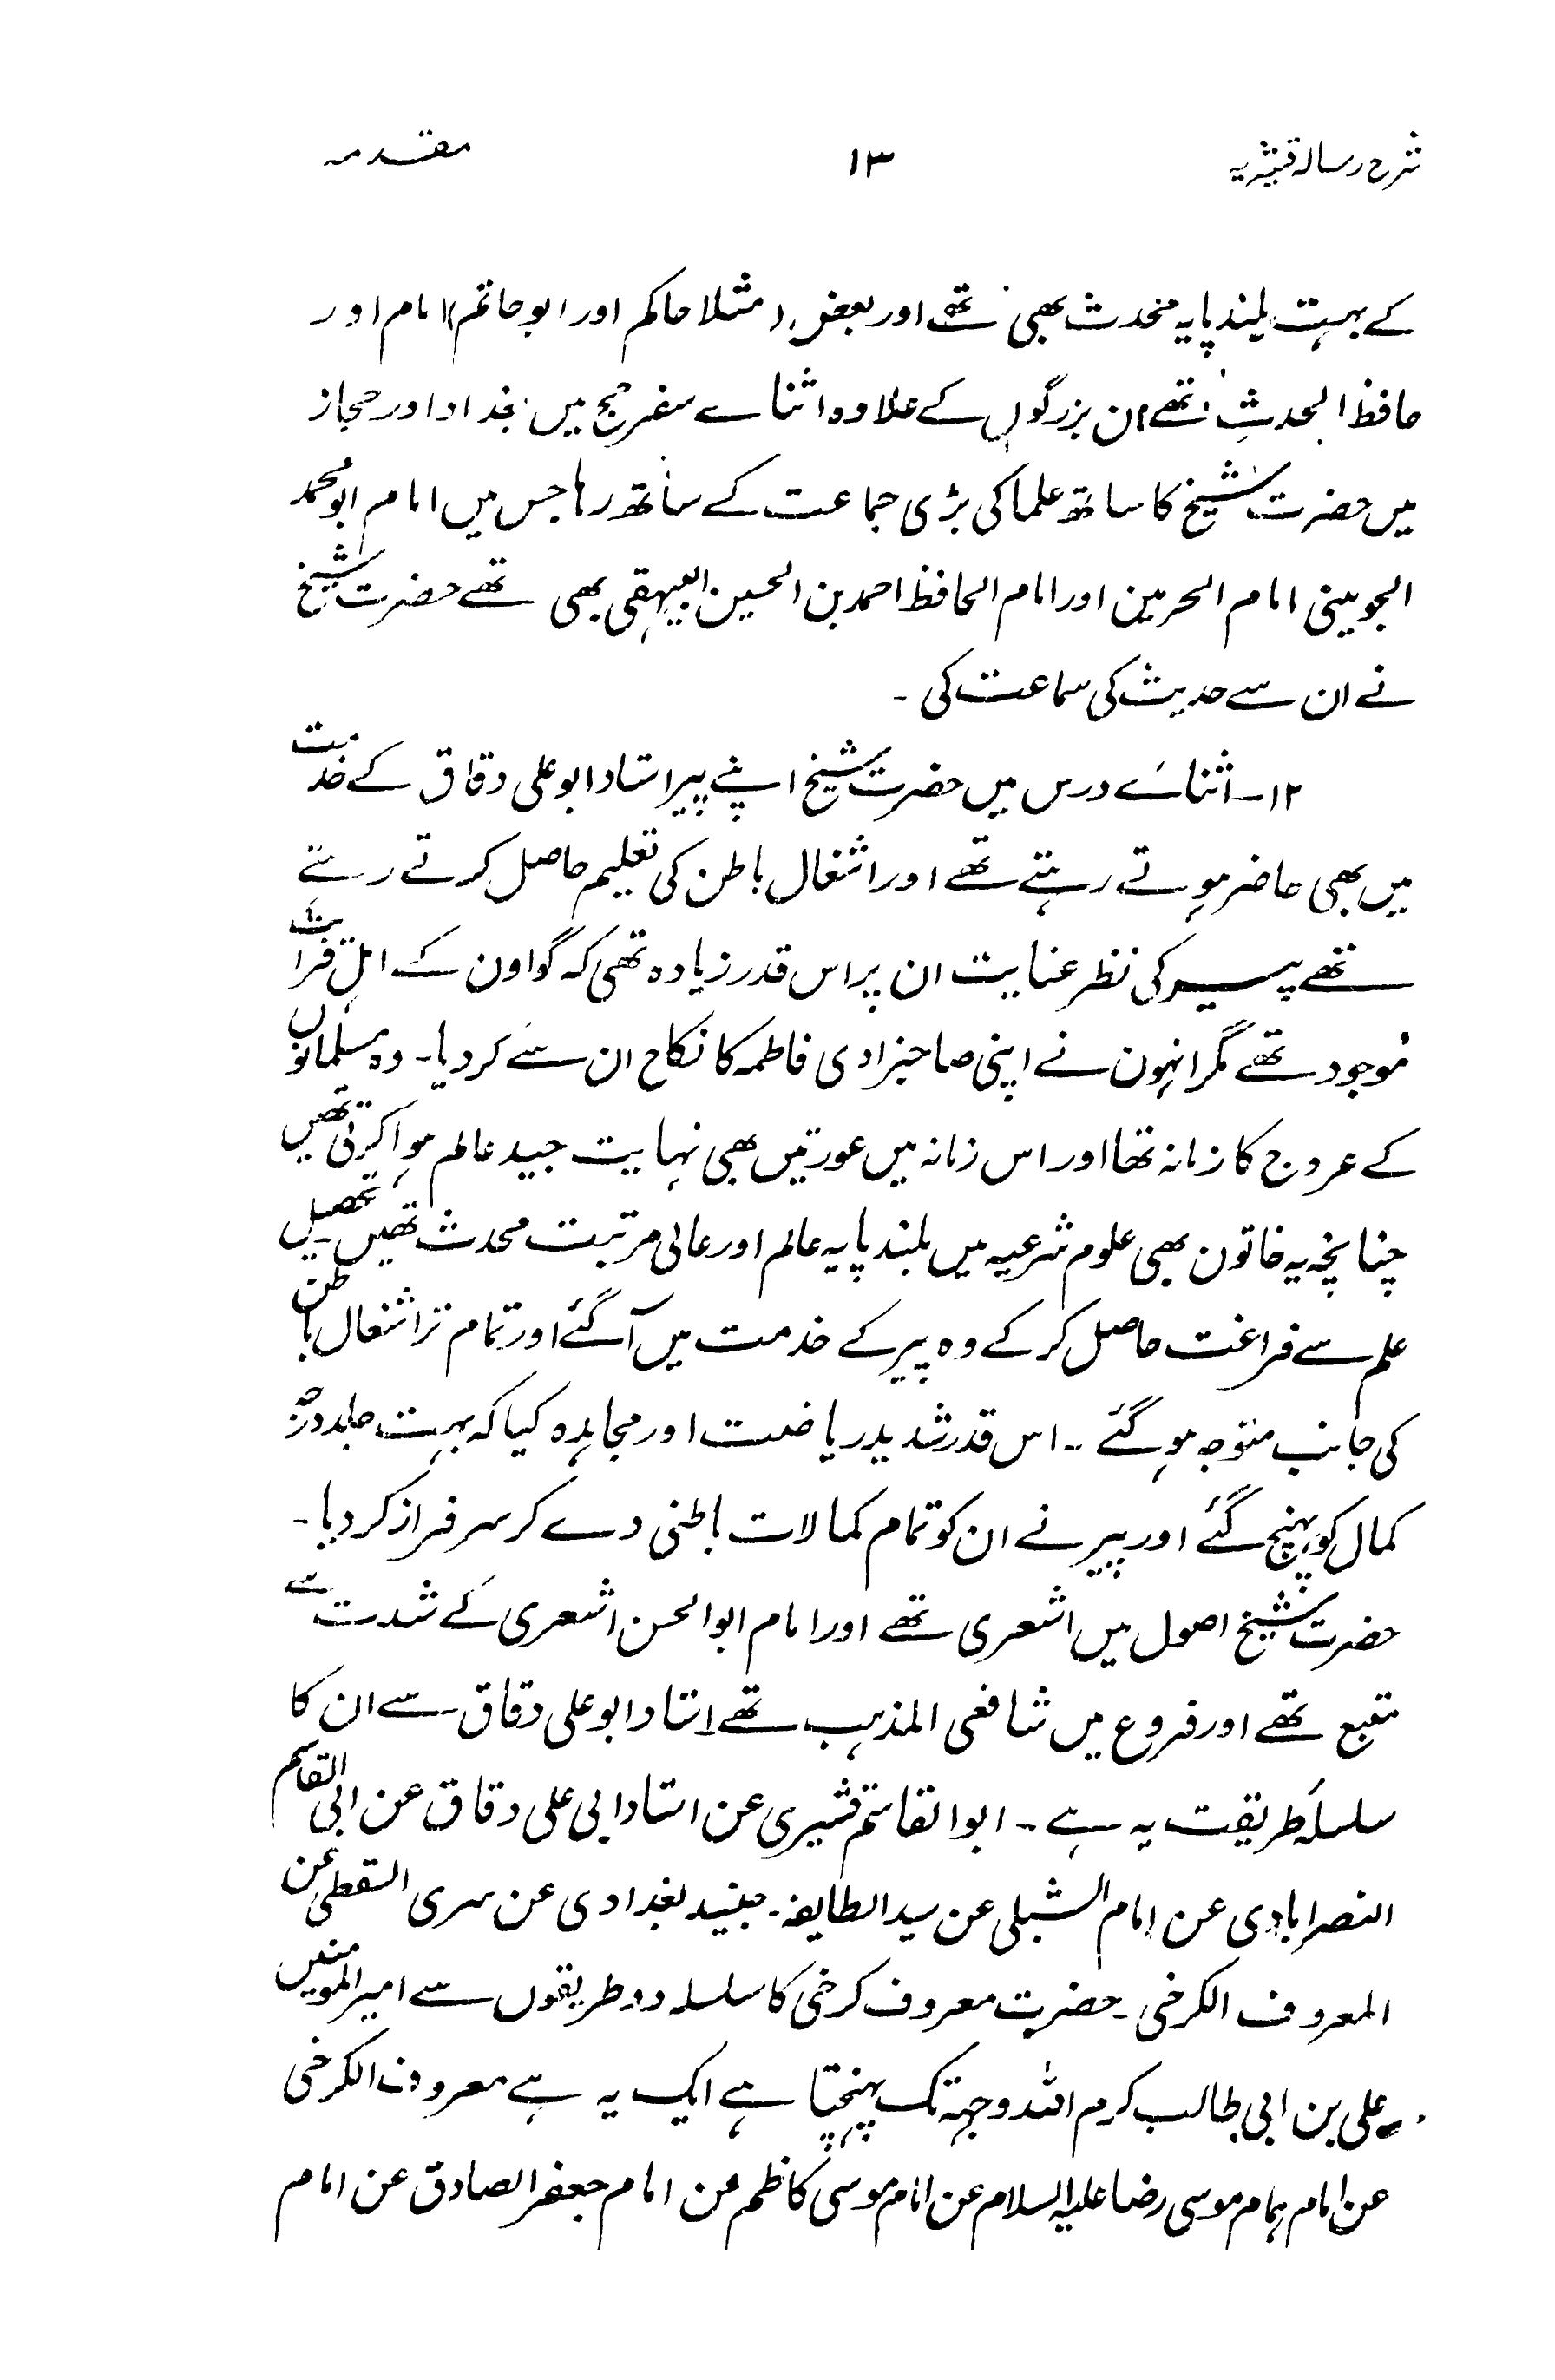 شرح رسالہ قشیریہ ۱۳ مقدمہ
کے بہت بلند پایہ محدث بھی تھے اور بعض (مثلا حاکم اور ابو حاتم) امام اور
حافظ الحدیث تھے ان بزرگوں کے علاوہ اثناے سفر حج میں بغداد اور حجاز
میں حضرت شیخ کا ساتھ علما کی بڑی جماعت کے ساتھ رہا جس میں امام ابو محمد
الجوینی امام الحرمین اور امام الحافظ احمد بن الحسین البیہقی بھی تھے حضرت شیخ
نے ان سے حدیث کی سماعت کی ۔
۱۲ ۔ اثناے درس میں حضرت شیخ اپنے پیر استاد ابو علی دقاق کے خدمت
میں بھی حاضر ہوتے رہتے تھے اور اشغال باطن کی تعلیم حاصل کرتے رہتے
تھے پیر کی نظر عنایت ان پر اس قدر زیادہ تھی کہ گو اون کے اہل قرابت
موجود تھے مگر انہون نے اپنی صاحبزادی فاطمہ کا نکاح ان سے کر دیا ۔ وہ مسلمانوں
کے عروج کا زمانہ تھا اور اس زمانہ میں عورتیں بھی نہایت جید عالم ہوا کرتی تھیں
چنانچہ یہ خاتون بھی علوم شرعیہ میں بلند پایہ عالم اور عالی مرتبت محدث تھیں ۔ تحصیل
علم سے فراغت حاصل کر کے وہ پیر کے خدمت میں آگئے اور تمام تر اشغال باطن
کی جانب متوجہ ہو گئے ۔ اس قدر شدید ریاضت اور مجاہدہ کیا کہ بہت جلد درجہ
کمال کو پہنچ گئے اور پیر نے ان کو تمام کمالات باطنی دے کر سرفراز کر دیا ۔
حضرت شیخ اصول میں اشعری تھے اور امام ابو الحسن اشعری کے شدت سے
متبع تھے اور فروع میں شافعی المذہب تھے استاد ابو علی دقاق سے ان کا
سلسلہ طریقت یہ ہے ۔ ابو القاسم قشیری عن استاد ابی علی دقاق عن ابی القاسم
النصرابادی عن امام الشبلی عن سید الطایفہ ۔ جنید بغدادی عن سری السقطی عن
المعروف الکرخی ۔ حضرت معروف کرخی کا سلسلہ دو طریقوں سے امیر المومنین
علی بن ابی طالب کرم اللہ وجہہ تک پہنچتا ہے ایک یہ ہے معروف الکرخی
عن امام ہمام موسی رضا علیہ السلام عن امام موسی کاظم عن امام جعفر الصادق عن امام